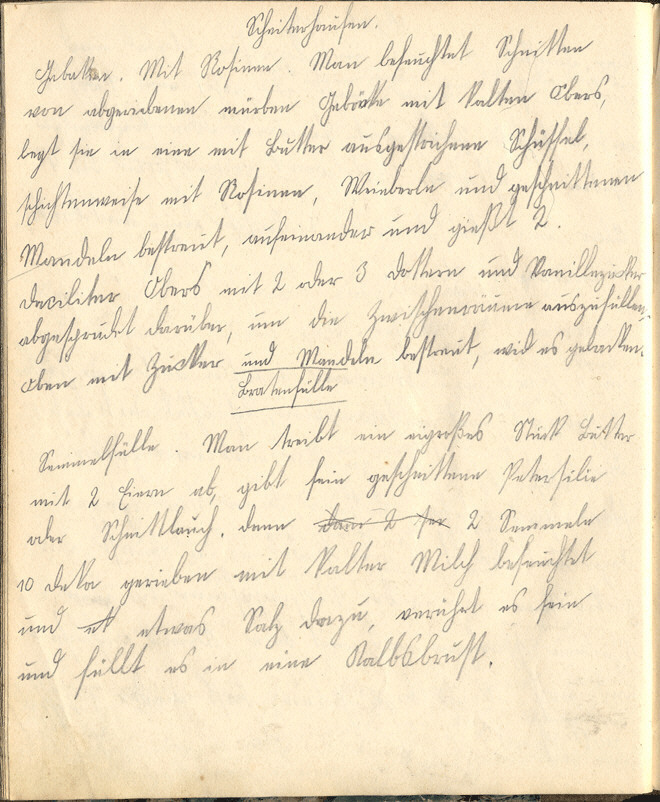 Scheiterhaufen.
Gebacken. Mit Rosinen. Man befeuchtet Schnitten
von abgeriebenen mürben Gebäcke mit kalten Obers,
legt sie in eine mit Butter ausgestrichene Schüssel,
schichtenweise mit Rosinen, Weinberln und geschnittenen
Mandeln bestreut, aufeinander und gießt 2.
Deciliter Obers mit 2 oder 3 Dottern und Vanillezucker
abgesprudelt darüber, um die Zwischenräume auszufüllen.
Oben mit Zucker und Mandeln bestreut, wird es gebacken.
Bratenfülle
Semmelfülle. Man treibt ein eigroßes Stück Butter
mit 2 Eiern ab, gibt fein geschnittene Petersilie
oder Schnittlauch, dann dann 2 Sem 2 Semmeln
10 deka gerieben mit kalter Milch befeuchtet
und et etwas Salz dazu, verührt es fein
und füllt es in eine Kalbsbrust.